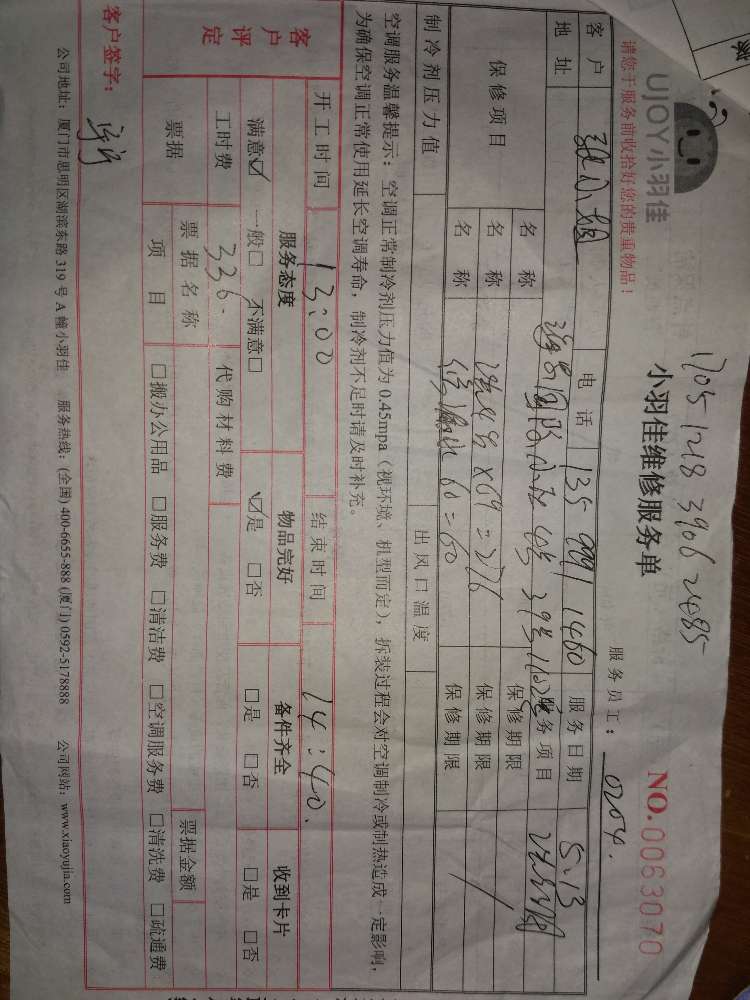 UJOY小羽佳
1705 1218 3906 2485
小羽佳维修服务单
NO.0063070
请您于服务前收拾好您的贵重物品！
服务员工： 0204.
客户 张小姐 电话 135 9091 1460 服务日期 5.13
地址 39号1102 服务项目
保修项目 名称 保修期限
名称 ×69=276 保修期限
名称 60=60 保修期限
制冷剂压力值 出风口温度
空调服务温馨提示：空调正常制冷剂压力值为 0.45mpa（视环境、机型而定），拆装过程会对空调制冷或制热造成一定影响，
为确保空调正常使用延长空调寿命，制冷剂不足时请及时补充。
开工时间 13:00 结束时间 14:40.
客户评定 服务态度 物品完好 备件齐全 收到卡片
满意☑ 一般□ 不满意□ ☑是 □否 □是 □否 □是 □否
工时费 336. 代购材料费
票据 票据名称 票据金额
项目 □搬办公用品 □服务费 □清洁费 □空调服务费 □清洗费 □疏通费
客户签字：
公司地址：厦门市思明区湖滨东路 319 号 A 幢小羽佳 服务热线：(全国) 400-6655-888 (厦门) 0592-5178888 公司网站：www.xiaoyujia.com